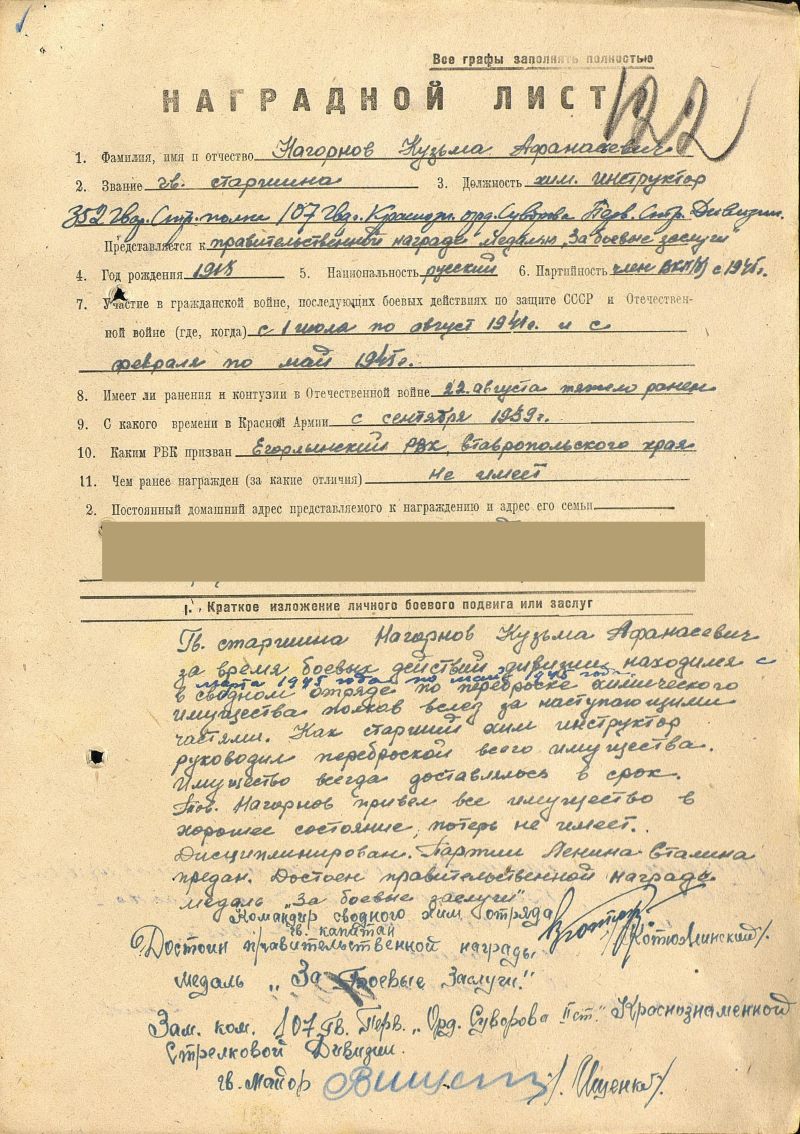 Все графы заполнять полностью
НАГРАДНОЙ ЛИСТ
122
1. Фамилия, имя и отчество Нагорнов Кузьма Афанасевич
2. Звание гв. старшина 3. Должность хим. инструктор
352 Гвар. Стр. полка 107 Гвд. Краснозн. орд. Суворова Перв. Стр. Дивизии.
Представляется к правительственной награде Медалью „За боевые заслуги"
4. Год рождения 1918 5. Национальность русский 6. Партийность член ВКП/б/ с 1945г.
7. Участие в гражданской войне, последующих боевых действиях по защите СССР и Отечествен-
ной войне (где, когда) с 1 июля по август 1941г. и с
февраля по май 1945г.
8. Имеет ли ранения и контузии в Отечественной войне 22. августа тяжело ранен
9. С какого времени в Красной Армии с сентября 1939г.
10. Каким РВК призван Егорлынский РВК, Ставропольского края
11. Чем ранее награжден (за какие отличия) не имеет
2. Постоянный домашний адрес представляемого к награждению и адрес его семьи
I. Краткое изложение личного боевого подвига или заслуг
Гв. старшина Нагорнов Кузьма Афанасевич
за время боевых действий дивизии находился с
марта 1945 года по май 1945 года
в сводном отряде по переброске химического
имущества полков вслед за наступающими
частями. Как старший хим инструктор
руководил переброской всего имущества.
Имущество всегда доставлялось в срок.
Тов. Нагорнов привел все имущество в
хорошее состояние, потерь не имеет.
Дисциплинирован. Партии Ленина Сталина
предан. Достоен правительственной награда
медаль „За боевые заслуги"
Командир сводного хим. отряда
гв. капитан /Котюжинский/.
Достоин правительственной награды
медаль „За Боевые Заслуги."
Зам. ком. 107 Гв. Перв. „Орд. Суворова II ст." Краснознаменной
Стрелковой Дивизии.
гв. майор /Ищенко/.